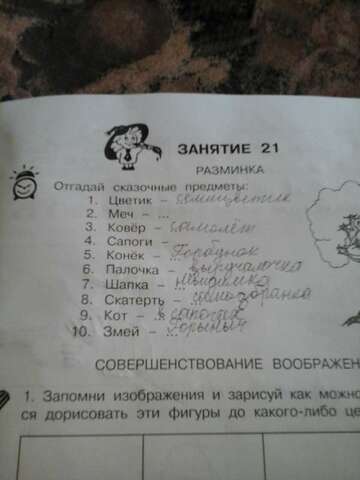 ЗАНЯТИЕ 21
РАЗМИНКА
Отгадай сказочные предметы:
1. Цветик – семицветик
2. Меч – ...
3. Ковёр – самолёт
4. Сапоги – ...
5. Конёк – Горбунок
6. Палочка – выручалочка
7. Шапка –
8. Скатерть – самобранка
9. Кот – в сапогах
10. Змей – Горыныч
СОВЕРШЕНСТВОВАНИЕ ВООБРАЖЕН
1. Запомни изображения и зарисуй как можно
ся дорисовать эти фигуры до какого-либо це